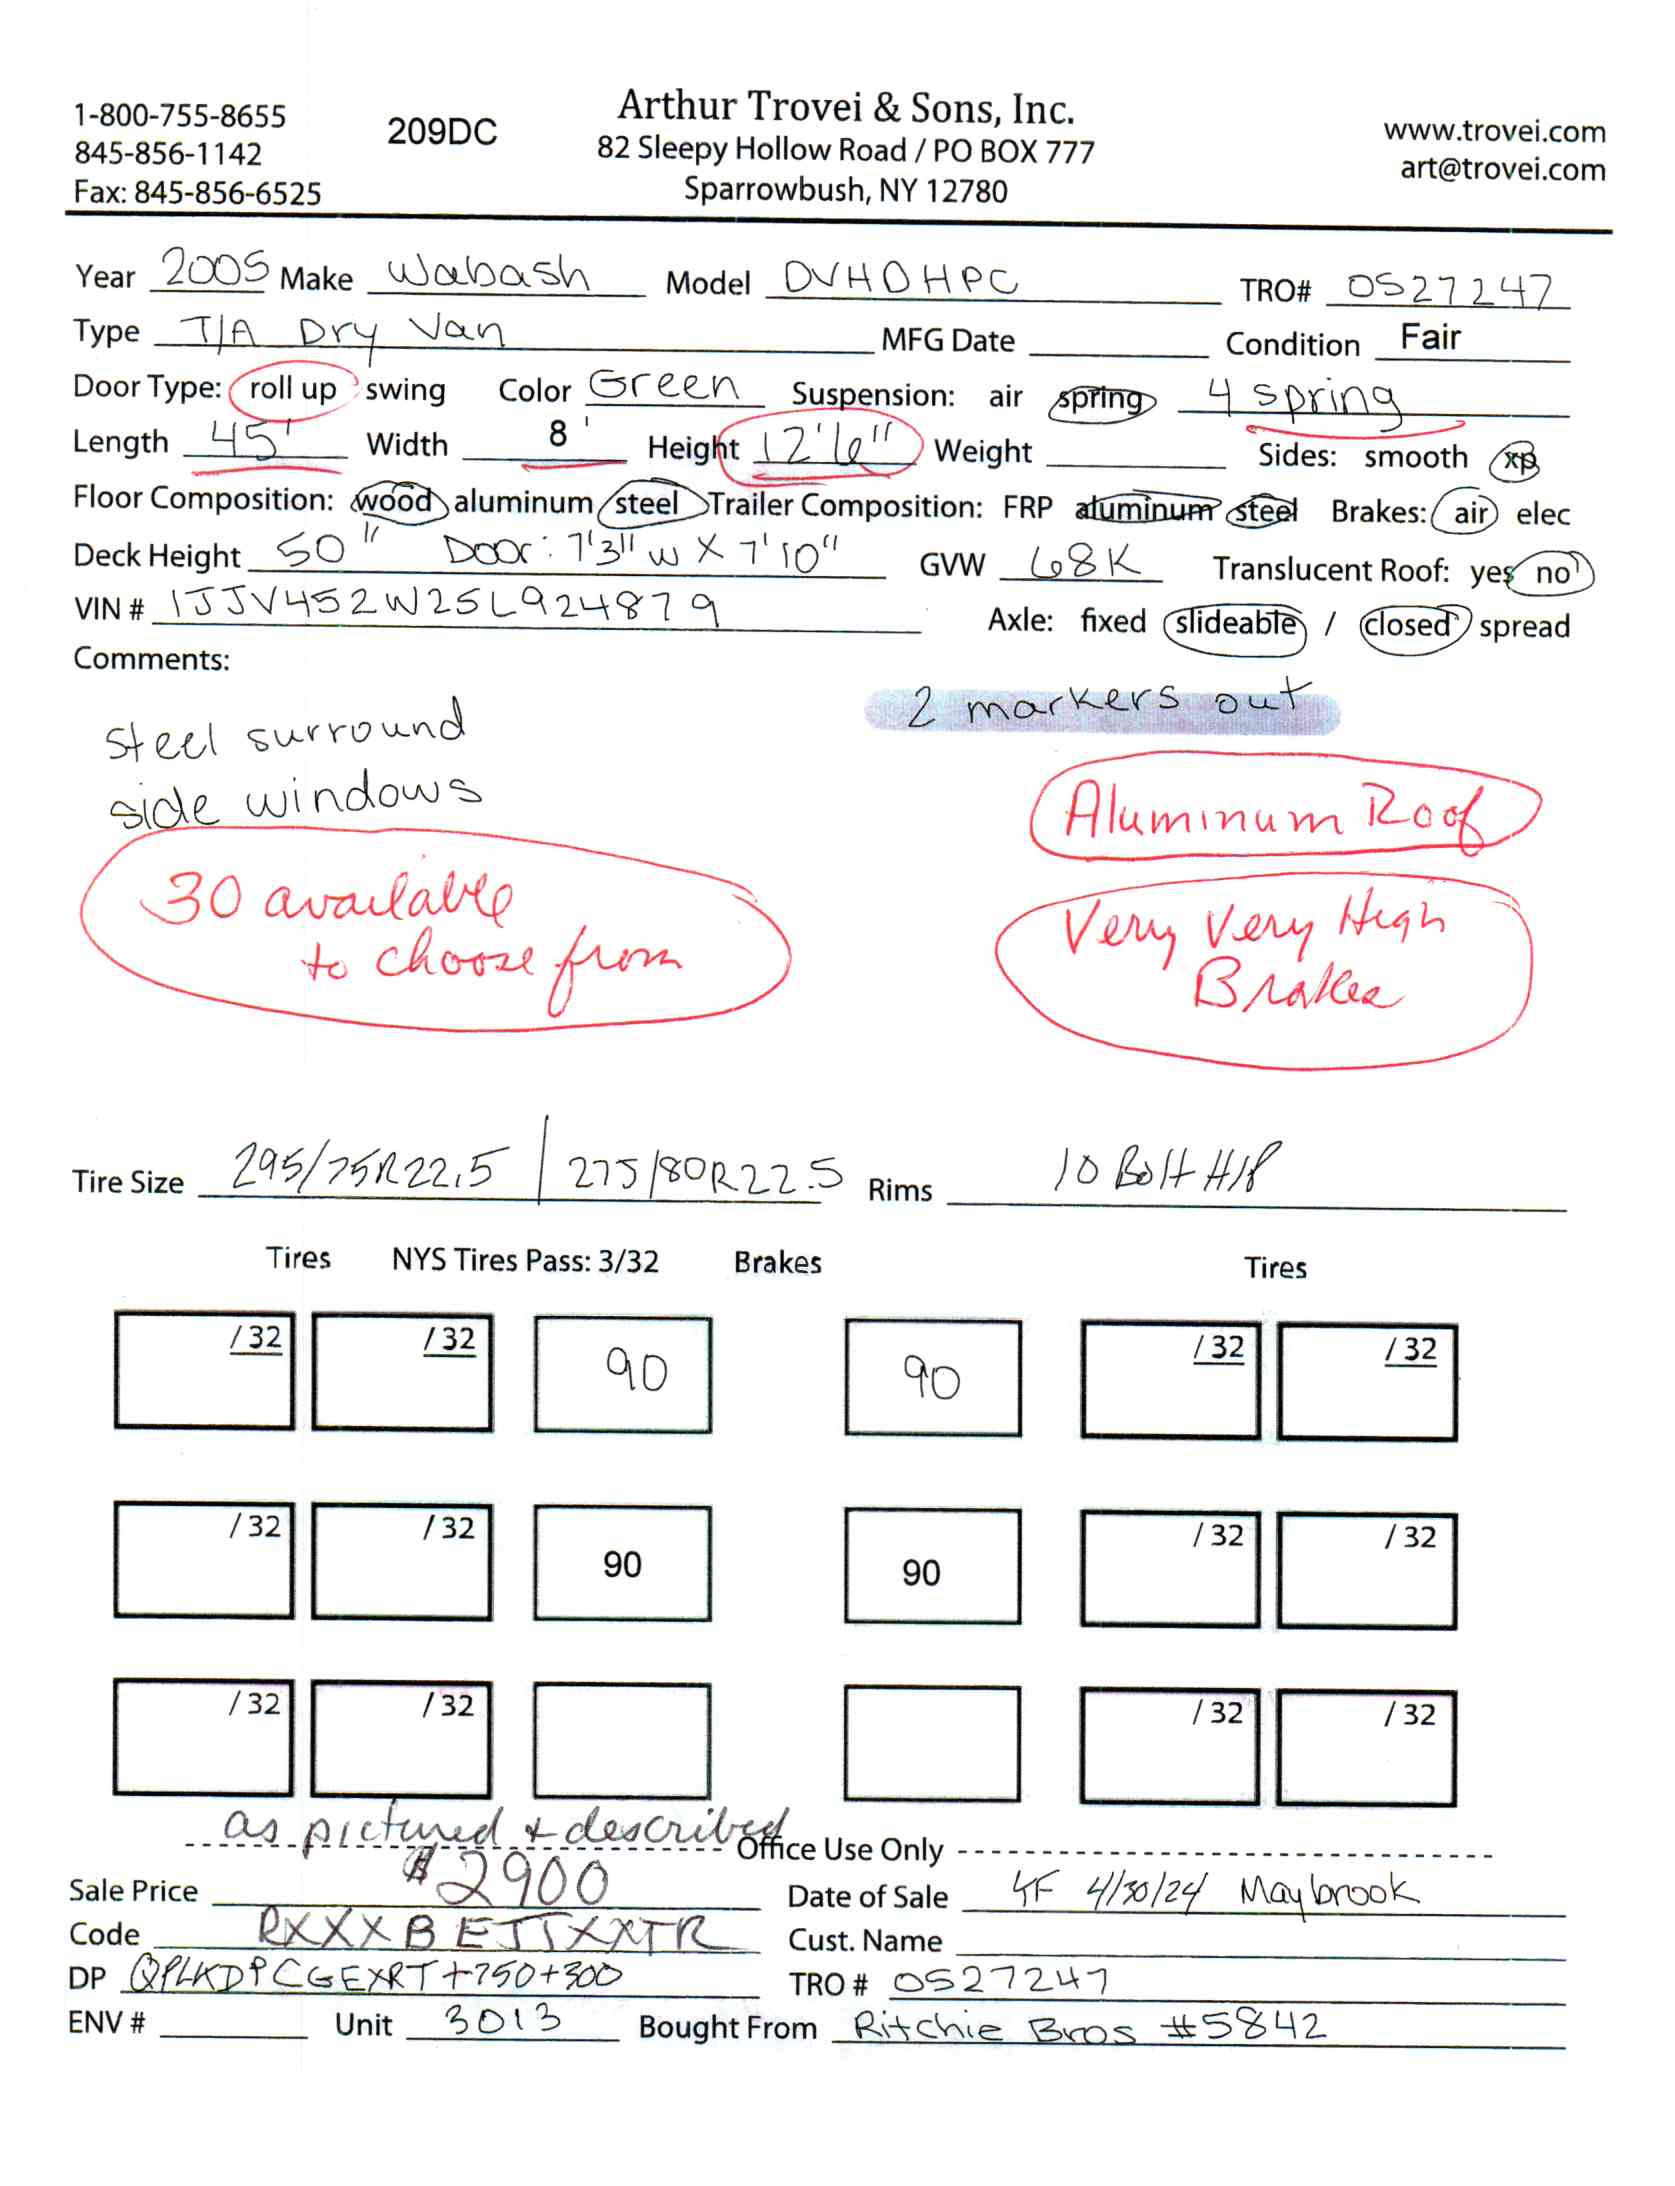 1-800-755-8655
845-856-1142
Fax: 845-856-6525
209DC
Arthur Trovei & Sons, Inc.
82 Sleepy Hollow Road / PO BOX 777
Sparrowbush, NY 12780
www.trovei.com
art@trovei.com
Year 2005 Make Wabash Model DVHDHPC TRO# 0527247
Type T/A Dry Van MFG Date Condition Fair
Door Type: roll up swing Color Green Suspension: air spring 4 spring
Length 45' Width 8' Height 12'6" Weight Sides: smooth xp
Floor Composition: wood aluminum steel Trailer Composition: FRP aluminum steel Brakes: air elec
Deck Height 50" Door: 7'3" w X 7'10" GVW 68K Translucent Roof: yes no
VIN # 1JJV452W25L924879 Axle: fixed slideable / closed spread
Comments:
2 markers out
steel surround
side windows
Aluminum Roof
30 available
to choose from
Very Very High
Brakes
Tire Size 295/75R22.5 | 275/80R22.5 Rims 10 Bolt H/P
Tires NYS Tires Pass: 3/32 Brakes Tires
/ 32 / 32 90 90 / 32 / 32
/ 32 / 32 90 90 / 32 / 32
/ 32 / 32 / 32 / 32
as pictured & described
Office Use Only
Sale Price $2900 Date of Sale 4/30/24 Maybrook
Code RXXXBEJTXXTR Cust. Name
DP QPLKDPCGEXRT+750+300 TRO # 0527247
ENV # Unit 3013 Bought From Ritchie Bros #5842